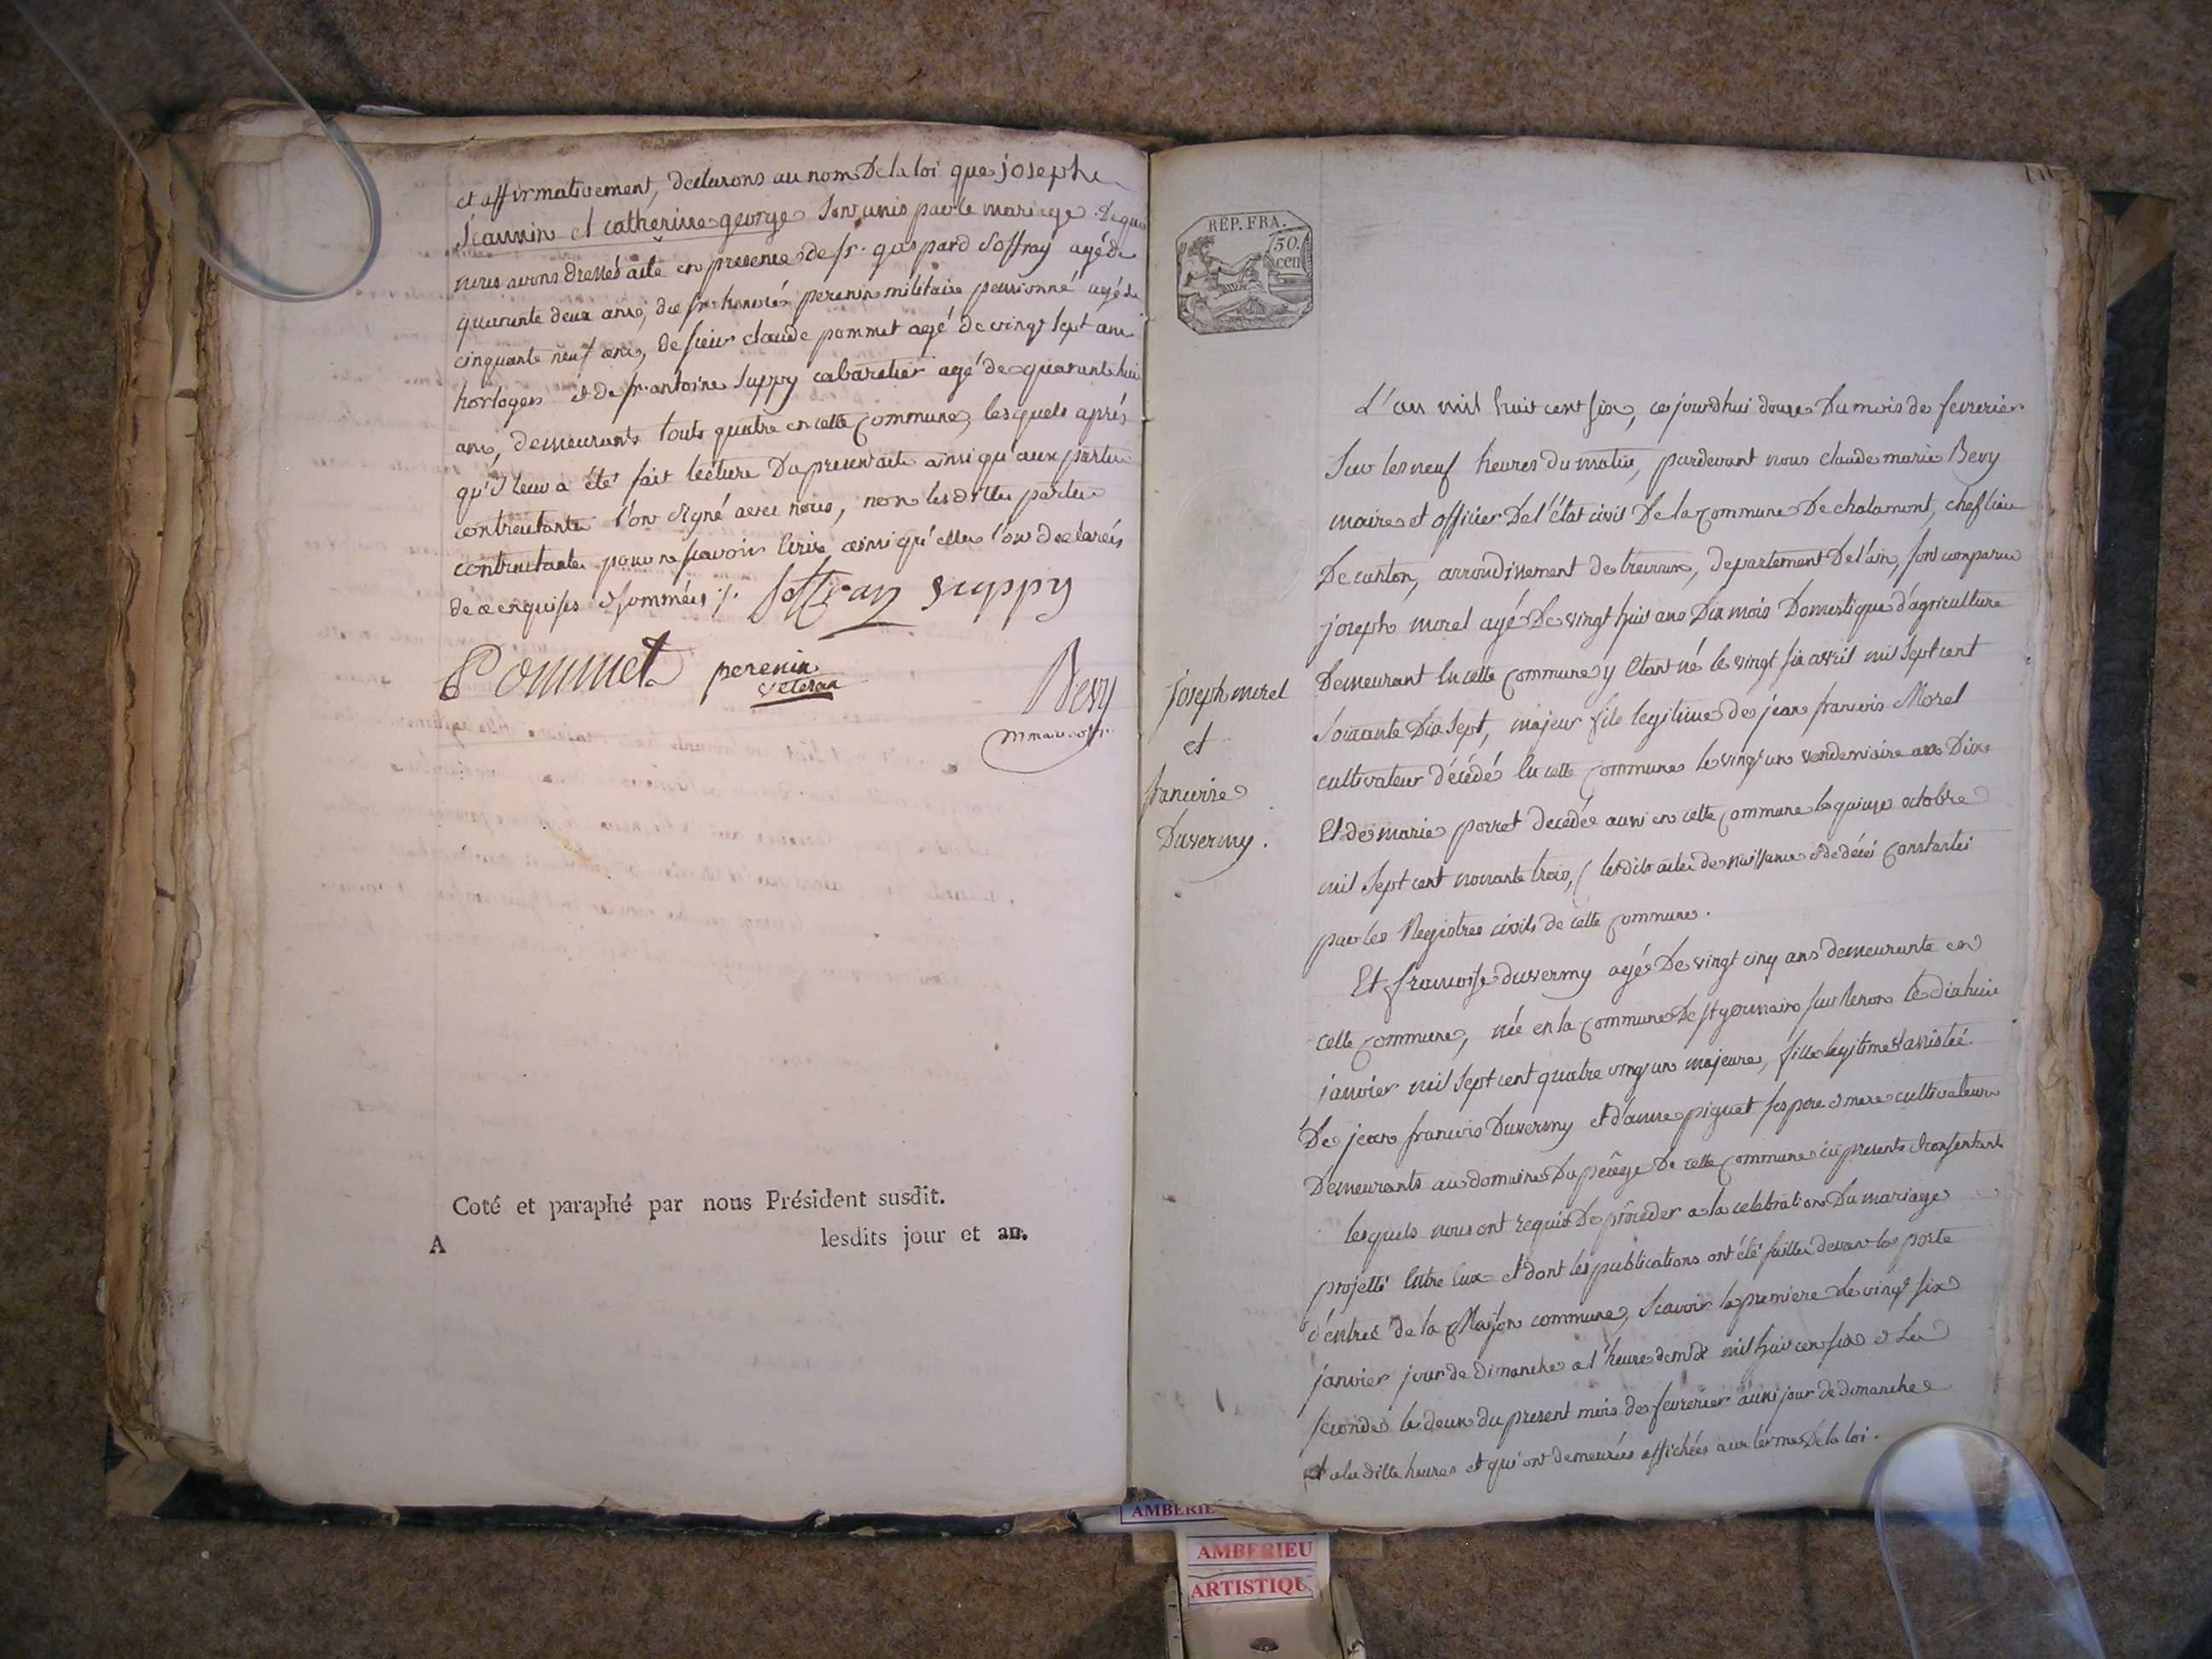 et affirmativement, declarons au nom De la loi que joseph
Jeannin et catherine george sont unis par le mariage. De quoi
nous avons dressé acte en presence de sr. gaspard Soffray agé de
quarante deux ans, de sr. honoré perenin militaire pensionné agé de
cinquante neuf ans, de sieur claude pommet agé de vingt sept ans
horloger et de sr. antoine Suppy cabaretier agé de quarante huit
ans, demeurants touts quatre en cette commune, lesquels aprés
qu'il leur a été fait lecture Du present acte ainsi qu'aux parties
contractantes l'ont signé avec nous, non lesdittes parties
contractantes pour ne scavoir ecrire ainsi qu'elles l'ont declarés
de ce enquises et sommées ./.
Soffray Suppy
Pommet perenin
veteran
Bevy
Coté et paraphé par nous Président susdit.
A lesdits jour et an.
REP. FRA.
50.
cen
L'an mil huit cent six, ce jourd'hui douze Du mois de fevrerier
Sur les neuf heures du matin, pardevant nous claude marie Bevy
maire et officier De l'état civil De la commune De chalamont, chef lieu
De canton, arrondissement de trevoux, departement De l'ain, sont comparus
joseph morel agé De vingt huit ans Dix mois Domestique d'agriculture
Demeurant en cette commune y etant né le vingt six avril mil sept cent
Soixante Dix sept, majeur fils legitime de jean francois Morel
cultivateur décédé en cette commune le vingt un vendemiaire an Dix
Et de marie porret decédée aussi en cette commune le quinze octobre
mil sept cent nonante trois, (lesdits actes de naissance et de décés constatés
par les Registres civils de cette commune.
joseph morel
et
francoise
Duvermy.
Et francoise duvermy agée De vingt cinq ans demeurante en
cette commune, née en la commune De st germain sur Renon le dix huit
janvier mil sept cent quatre vingt un majeure, fille legitime et assistée
De jean francois Duvermy et d'anne piguet ses pere et mere cultivateurs
Demeurants au domaine Du péage De cette commune ici presents et consentants
lesquels nous ont requis De procéder a la celebration Du mariage
projetté entre eux et dont les publications ont été faittes devant la porte
d'entree de la Maison commune, Scavoir la premiere le vingt six
janvier jour de Dimanche a l'heure de midi mil huit cent six et la
seconde le deux du present mois de fevrerier aussi jour de dimanche
et a la ditte heure et qui ont demeurées affichées aux termes De la loi.
AMBERIE
AMBERIEU
ARTISTIQU